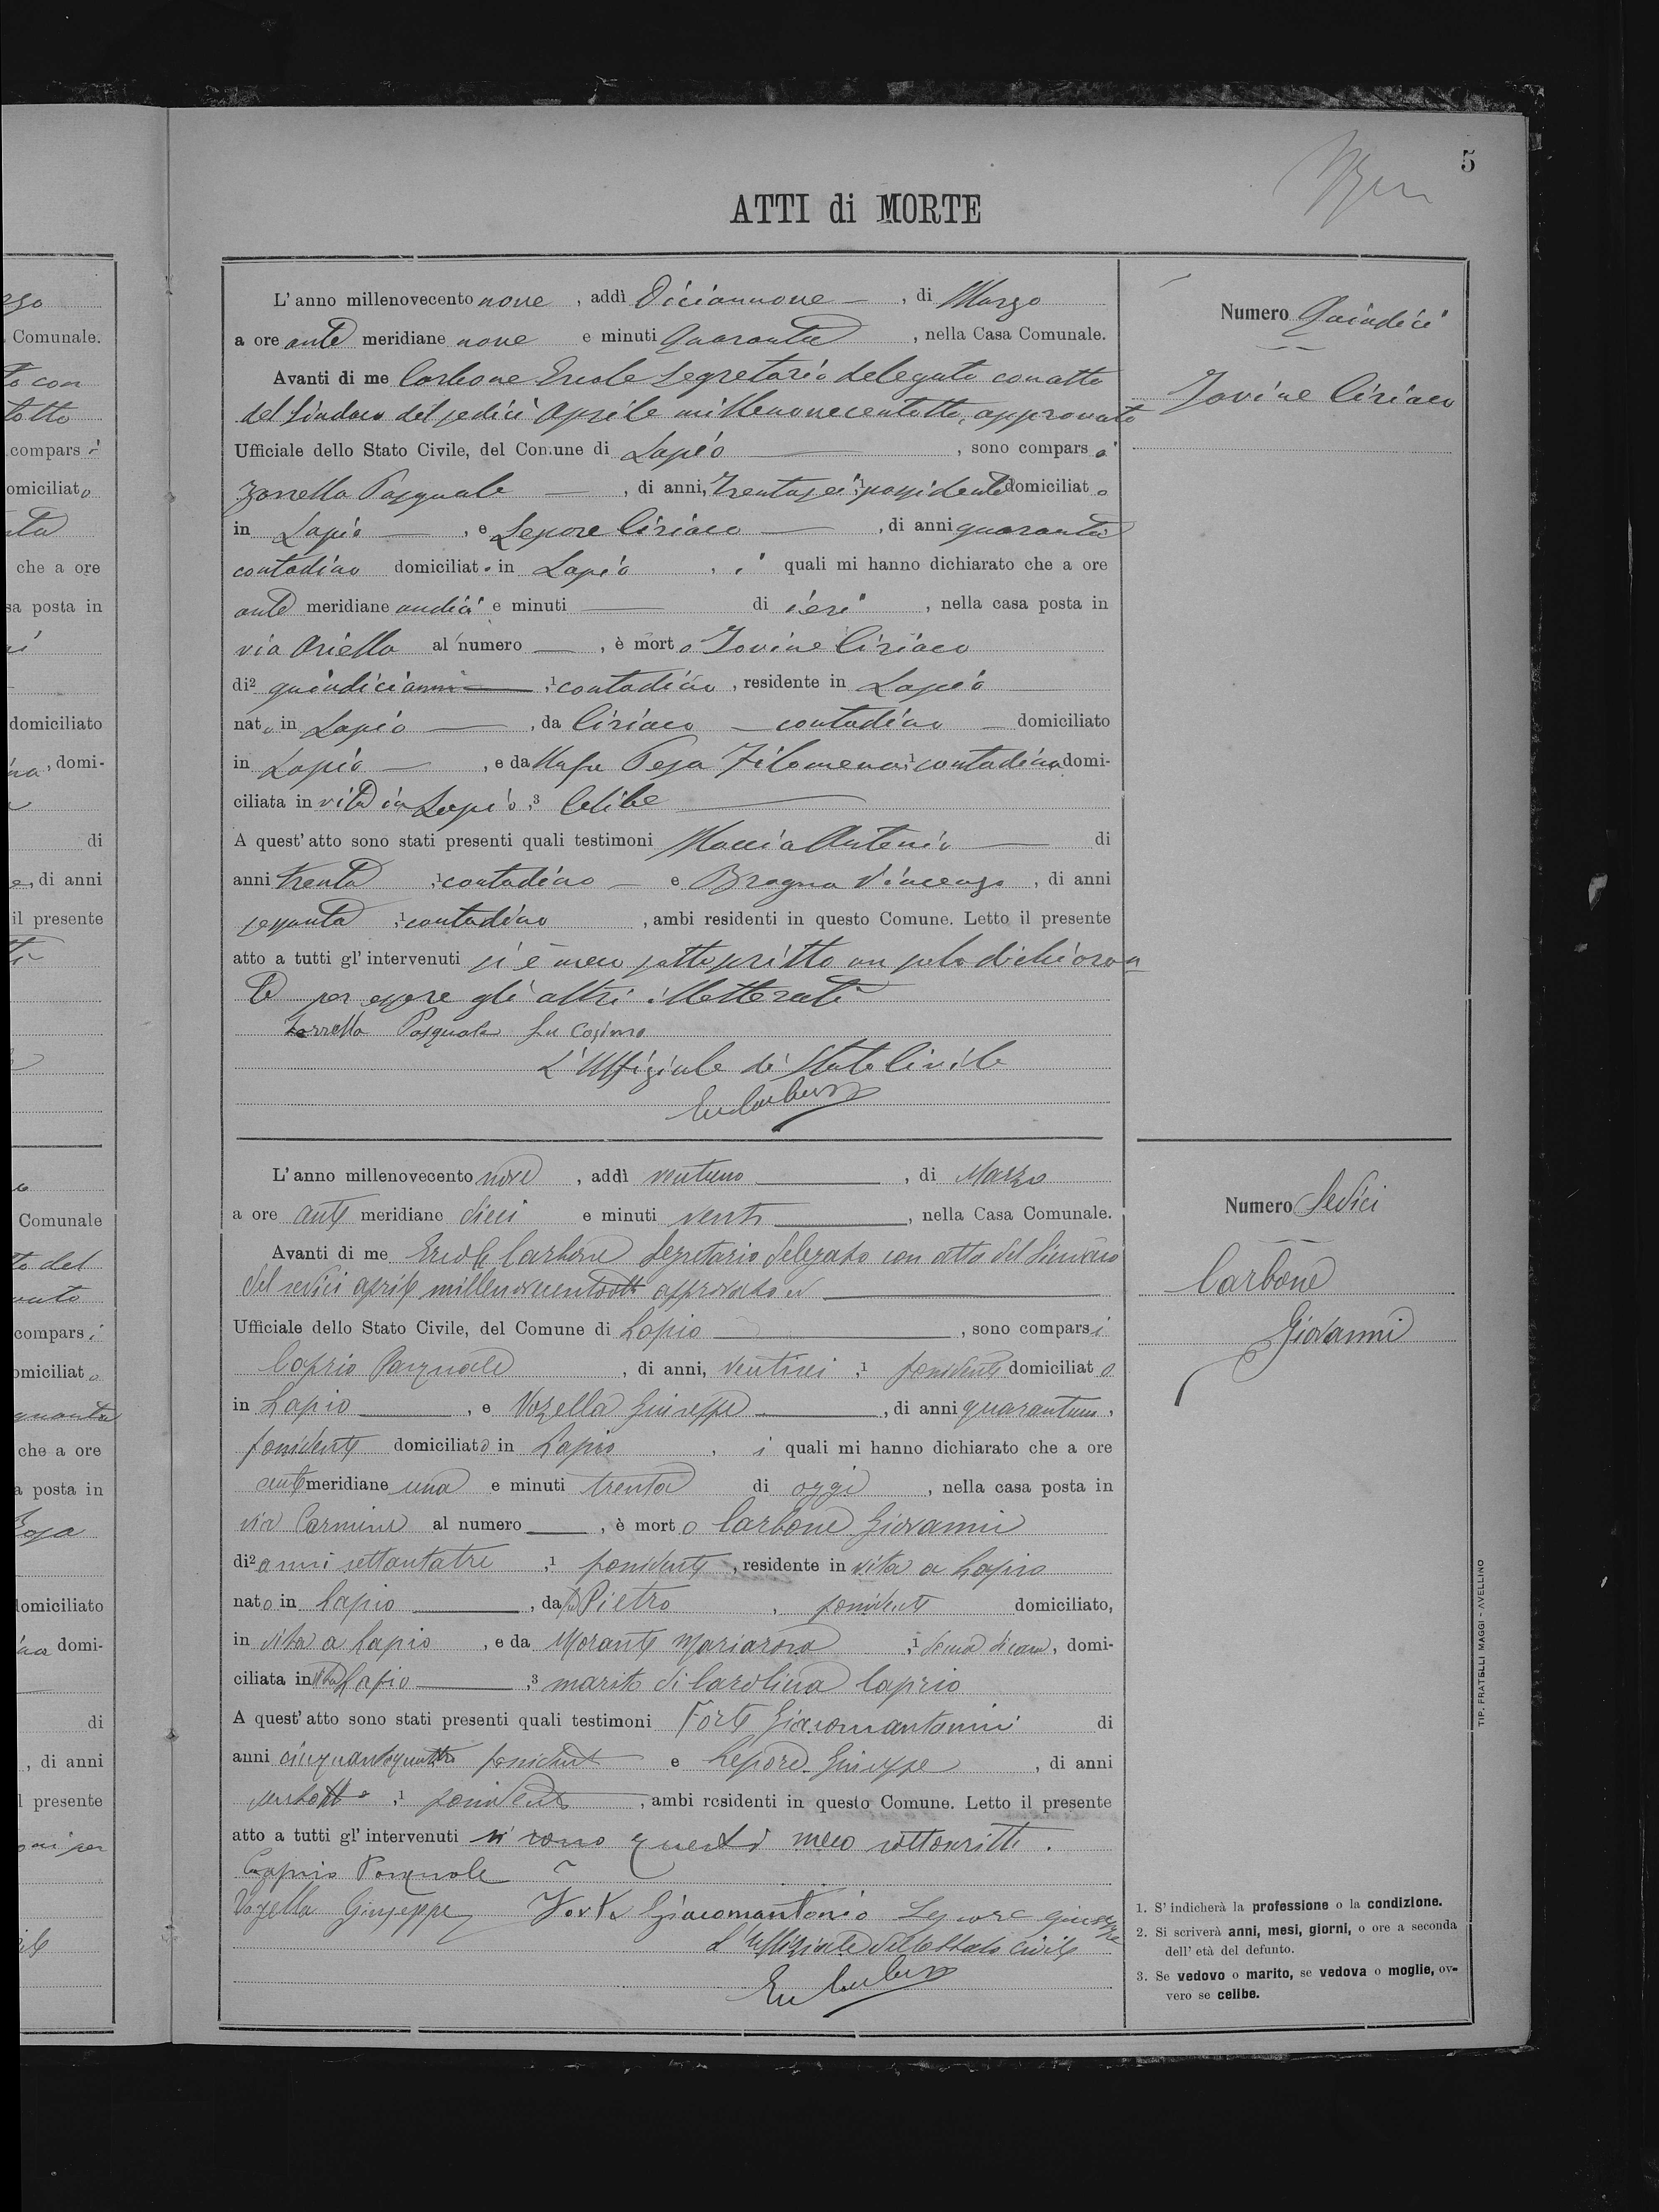 5
ATTI di MORTE
L' anno millenovecento nove , addì Diciannove , di Marzo
a ore ante meridiane nove e minuti Quaranta , nella Casa Comunale.
Avanti di me Carbone Ercole Segretario delegato con atto
del Sindaco del sedici Aprile millenovecentotto, approvato
Ufficiale dello Stato Civile, del Comune di Lapio , sono compars i
Zarrella Pasquale , di anni, trentasei ,1 possidente domiciliat o
in Lapio , e Lepore Ciriaco , di anni quaranta
contadino domiciliat o in Lapio , i quali mi hanno dichiarato che a ore
ante meridiane undici e minuti di ieri , nella casa posta in
via Ariella al numero , è mort o Iovine Ciriaco
di2 quindici anni ,1 contadino , residente in Lapio
nat o in Lapio , da Ciriaco contadino domiciliato
in Lapio , e da Pesa Filomena ,1 contadina domi-
ciliata in vita in Lapio ,3 Celibe
A quest' atto sono stati presenti quali testimoni Maccia Antonio di
anni trenta ,1 contadino e Bragna Vincenzo , di anni
sessanta ,1 contadino , ambi residenti in questo Comune. Letto il presente
atto a tutti gl' intervenuti si è meco sottoscritto un solo dichiaran
te per essere gli altri illetterati
Zarrella Pasquale fu Cosimo
L'Uffiziale di Stato Civile
Numero Quindici
Iovine Ciriaco
L' anno millenovecento nove , addì ventuno , di Marzo
a ore ante meridiane dieci e minuti venti , nella Casa Comunale.
Avanti di me Ercole Carbone Segretario delegato con atto del Sindaco
del sedici aprile millenovecentotto approvato
Ufficiale dello Stato Civile, del Comune di Lapio , sono compars i
Caprio Pasquale , di anni, ventisei ,1 possidente domiciliat o
in Lapio , e Vozella Giuseppe , di anni quarantuno,
possidente domiciliat o in Lapio , i quali mi hanno dichiarato che a ore
ante meridiane una e minuti trenta di oggi , nella casa posta in
via Carmine al numero , è mort o Carbone Giovanni
di2 anni settantatre ,1 possidente , residente in vita a Lapio
nat o in Lapio , da fu Pietro , possidente domiciliato,
in vita a Lapio , e da Morante Mariarosa ,1 donna di casa, domi-
ciliata in vita Lapio ,3 marito di Carolina Caprio
A quest' atto sono stati presenti quali testimoni Forte Giacomantonio di
anni cinquantaquattro possidente e Lepore Giuseppe , di anni
,1 possidente , ambi residenti in questo Comune. Letto il presente
atto a tutti gl' intervenuti si sono questi meco sottoscritti.
Caprio Pasquale
Vozella Giuseppe Forte Giacomantonio Lepore Giuseppe
L'Uffiziale dello Stato Civile
Numero Sedici
Carbone
Giovanni
1. S' indicherà la professione o la condizione.
2. Si scriverà anni, mesi, giorni, o ore a seconda
dell' età del defunto.
3. Se vedovo o marito, se vedova o moglie, ov-
vero se celibe.
TIP. FRATELLI MAGGI - AVELLINO